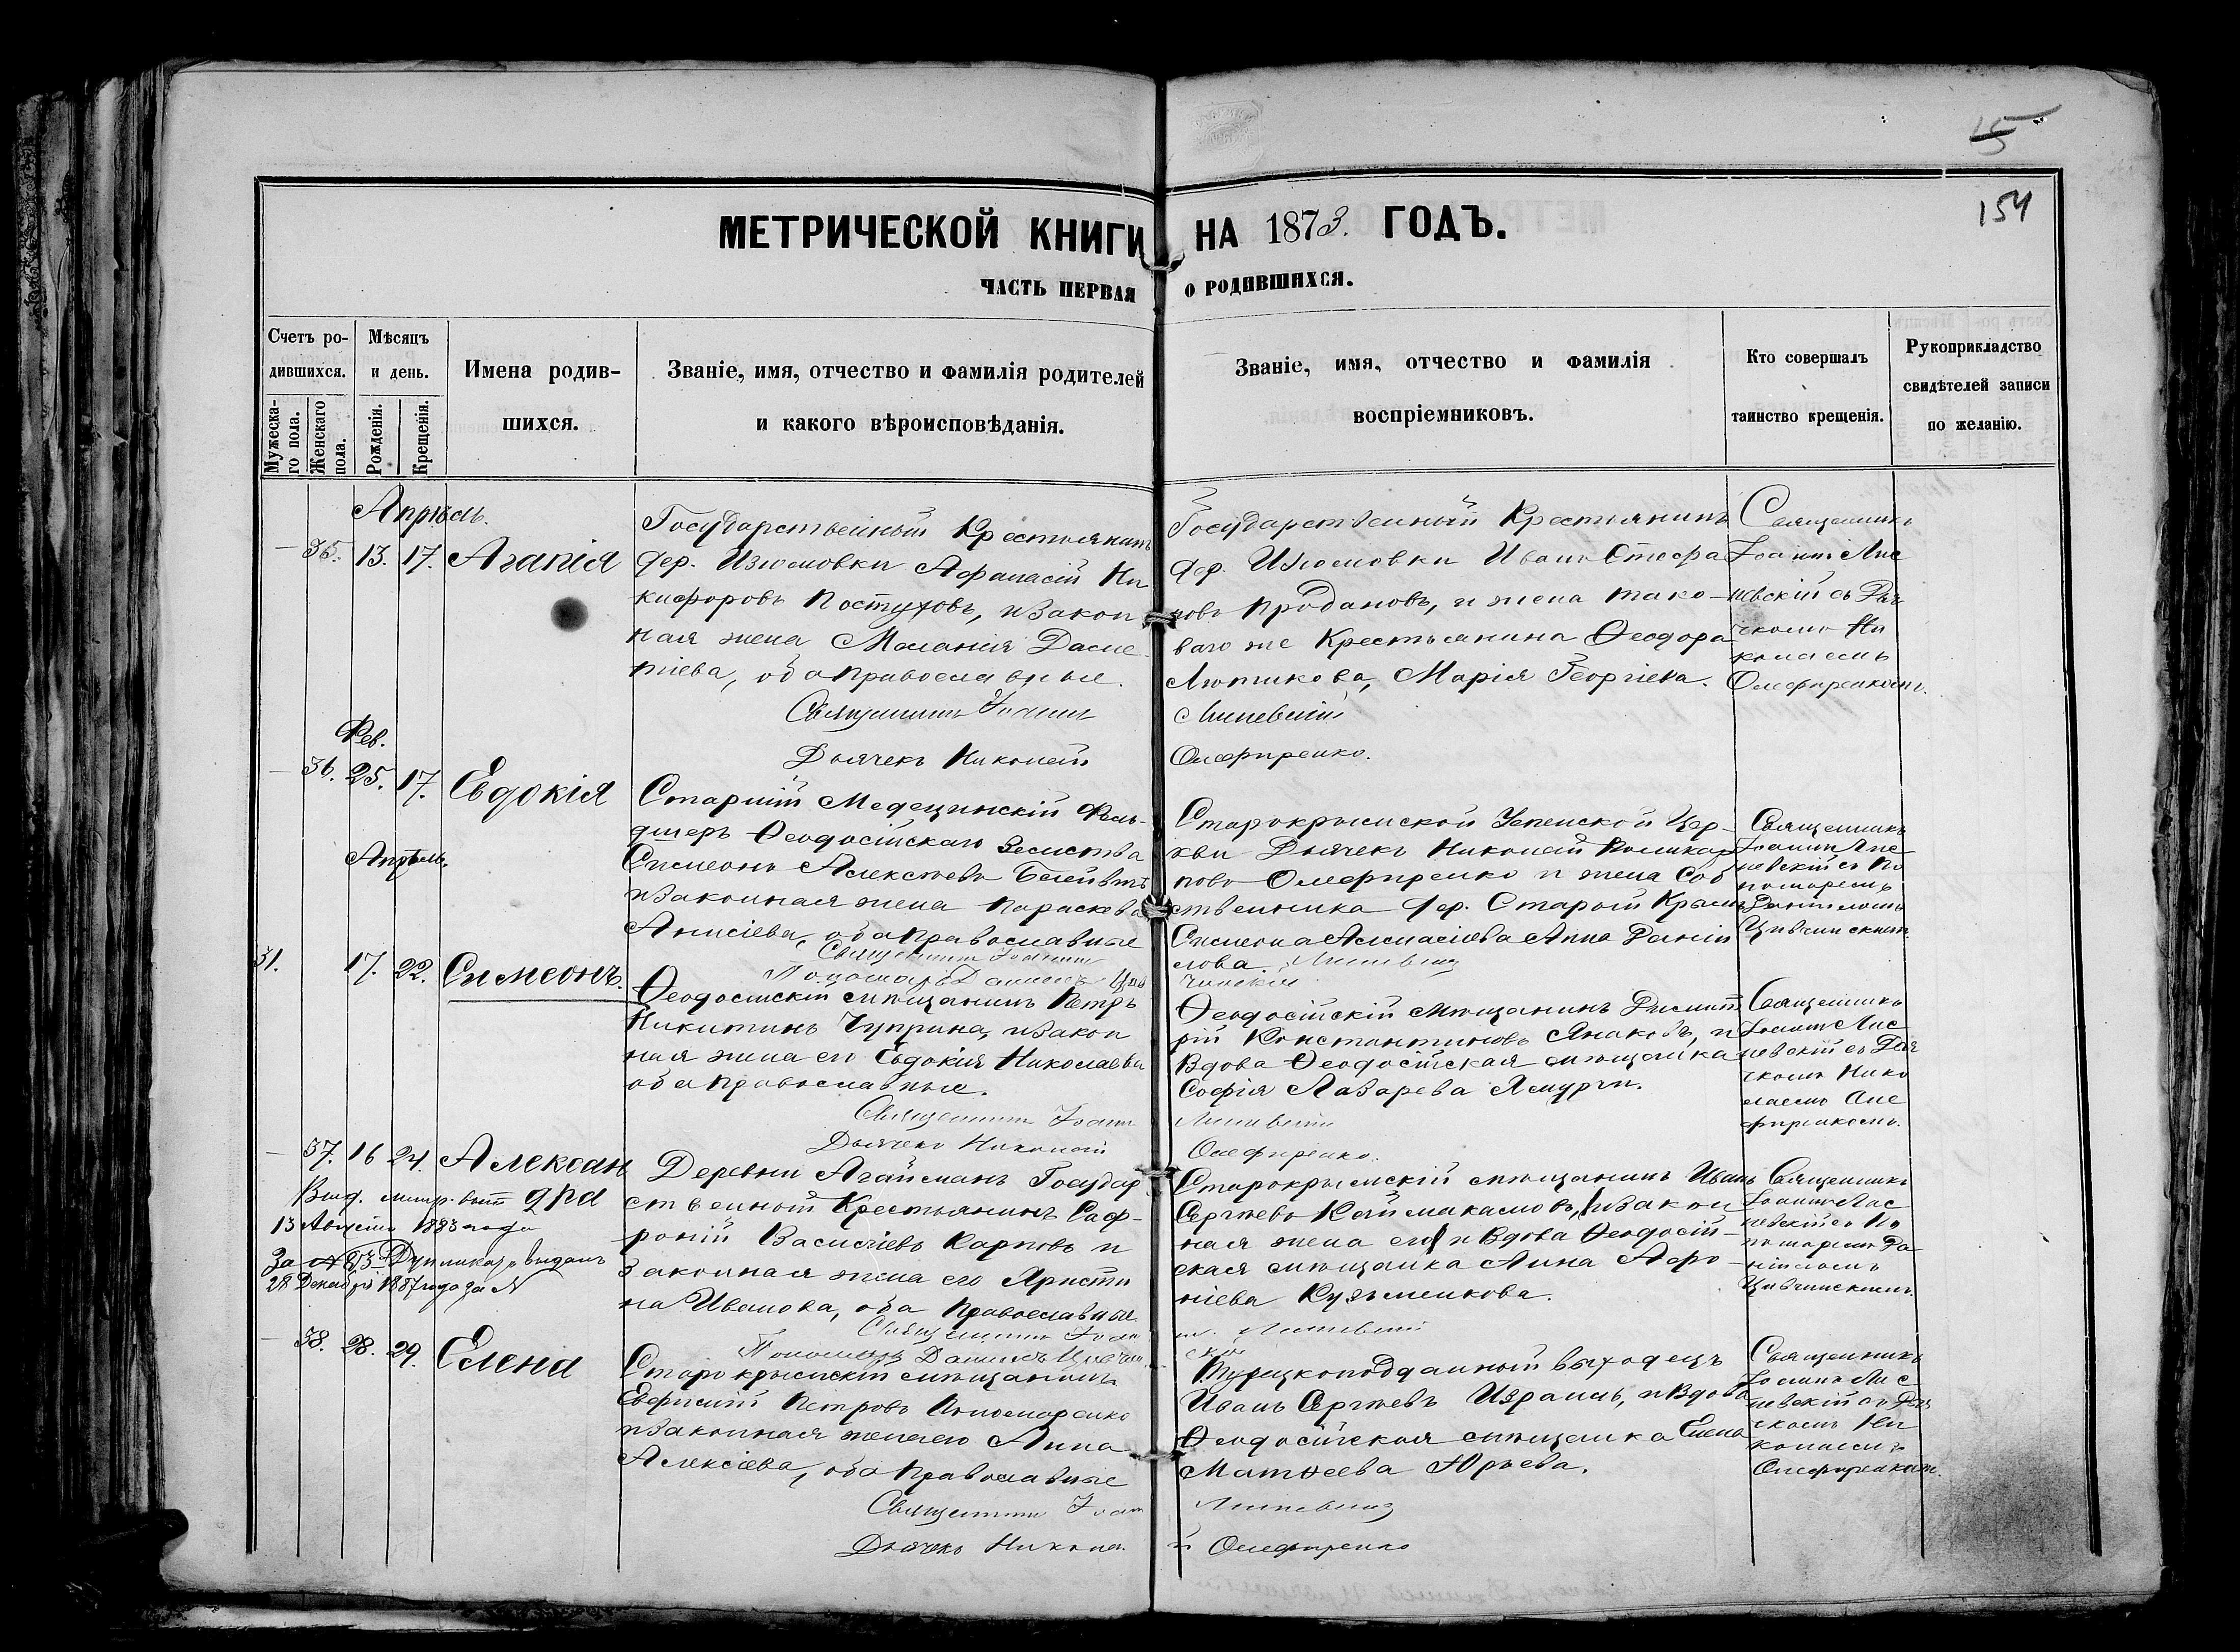 15
154
МЕТРИЧЕСКОЙ КНИГИ НА 1873. ГОДЪ.
ЧАСТЬ ПЕРВАЯ О РОДИВШИХСЯ.
Счетъ ро-
дившихся.
Мужеска-
го пола.
Женскаго
пола.
Мѣсяцъ
и день.
Рожденія.
Крещенія.
Имена родив-
шихся.
Званіе, имя, отчество и фамилія родителей
и какого вѣроисповѣданія.
Званіе, имя, отчество и фамилія
воспріемниковъ.
Кто совершалъ
таинство крещенія.
Рукоприкладство
свидѣтелей записи
по желанію.
Апрѣль.
35. 13. 17. Агапія
Государственный Крестьянинъ
дер. Изюмовки Афанасій Ни
кифоровъ Постуховъ, и закон
ная жена Меланія Даме
тіева, оба православные.
Священникъ Іоаннъ
Дьячекъ Николай
Государственный Крестьянинъ
дер. Изюмовки Иванъ Стефа
новъ Продановъ, и жена тако-
ваго же Крестьянина Ѳеодора
Лютикова, Марія Георгіева.
Олефиренко.
Священникъ
Іоаннъ
съ Дья
чкомъ Ни
колаемъ
Олефиренкомъ.
Фев.
36. 25. 17. Евдокія
Апрѣль.
Старшій Медецинскій Фель-
дшеръ Ѳеодосійскаго Земства
Симеонъ Алексѣевъ
и законная жена Параскева
Анисіева, оба православные
Священникъ Іоаннъ
Пономарь Даніилъ Цив
чинскій
Старокрымской Успенской Цер-
кви Дьячекъ Николай Поликар
повъ Олефиренко и жена Соб
ственника дер. Старой Крымъ
Симеона Аѳанасіева Анна Даніи
лова.
Священникъ
Іоаннъ
съ По
номаремъ
Даніиломъ
Цивчинскимъ.
31. 17. 22. Симеонъ.
Ѳеодосійскій мѣщанинъ Петръ
Никитинъ Чуприна, и закон
ная жена его Евдокія Николаева
оба православные.
Священникъ Іоаннъ
Дьячекъ Николай
Ѳеодосійскій мѣщанинъ Димит
рій Константиновъ Янаковъ, и
Вдова Ѳеодосійская мѣщанка
Софія Лазарева Ямурчи.
Олефиренко.
Священникъ
Іоаннъ
съ Дья
чкомъ Нико
лаемъ Оле
фиренкомъ.
37. 16 24. Александра
Выд. метр. вып.
13 Августа 1883 года
За № 93 Дупликатъ выданъ
28 Декабря 1887 года за №
Деревни Агайсманъ Государ
ственной Крестьянинъ Саф-
роній Василіевъ Карповъ и
законная жена его Христи
на Иванова, оба православные
Священникъ Іоаннъ
Пономарь Даніилъ Цивчин
скій
Старокрымскій мѣщанинъ Иванъ
Сергѣевъ Каймакамовъ, и закон
ная жена его и Вдова Ѳеодосій-
ская мѣщанка Анна Афо
ніева Кузьменкова.
Священникъ
Іоаннъ
съ По
номаремъ Да
ніиломъ
Цивчинскимъ.
38. 28. 29. Елена
Старокрымскій мѣщанинъ
Евфимій Петровъ Пономаренко
и законная жена его Анна
Алексіева, оба православные
Священникъ Іоаннъ
Дьячекъ Николай
Турецкоподданный выходецъ
Иванъ Сергѣевъ Израиль, и Вдова
Ѳеодосійская мѣщанка Елена
Матѳеева Юрьева.
Олефиренко
Священникъ
Іоаннъ
съ Дья
чкомъ Ни
колаемъ
Олефиренкомъ.